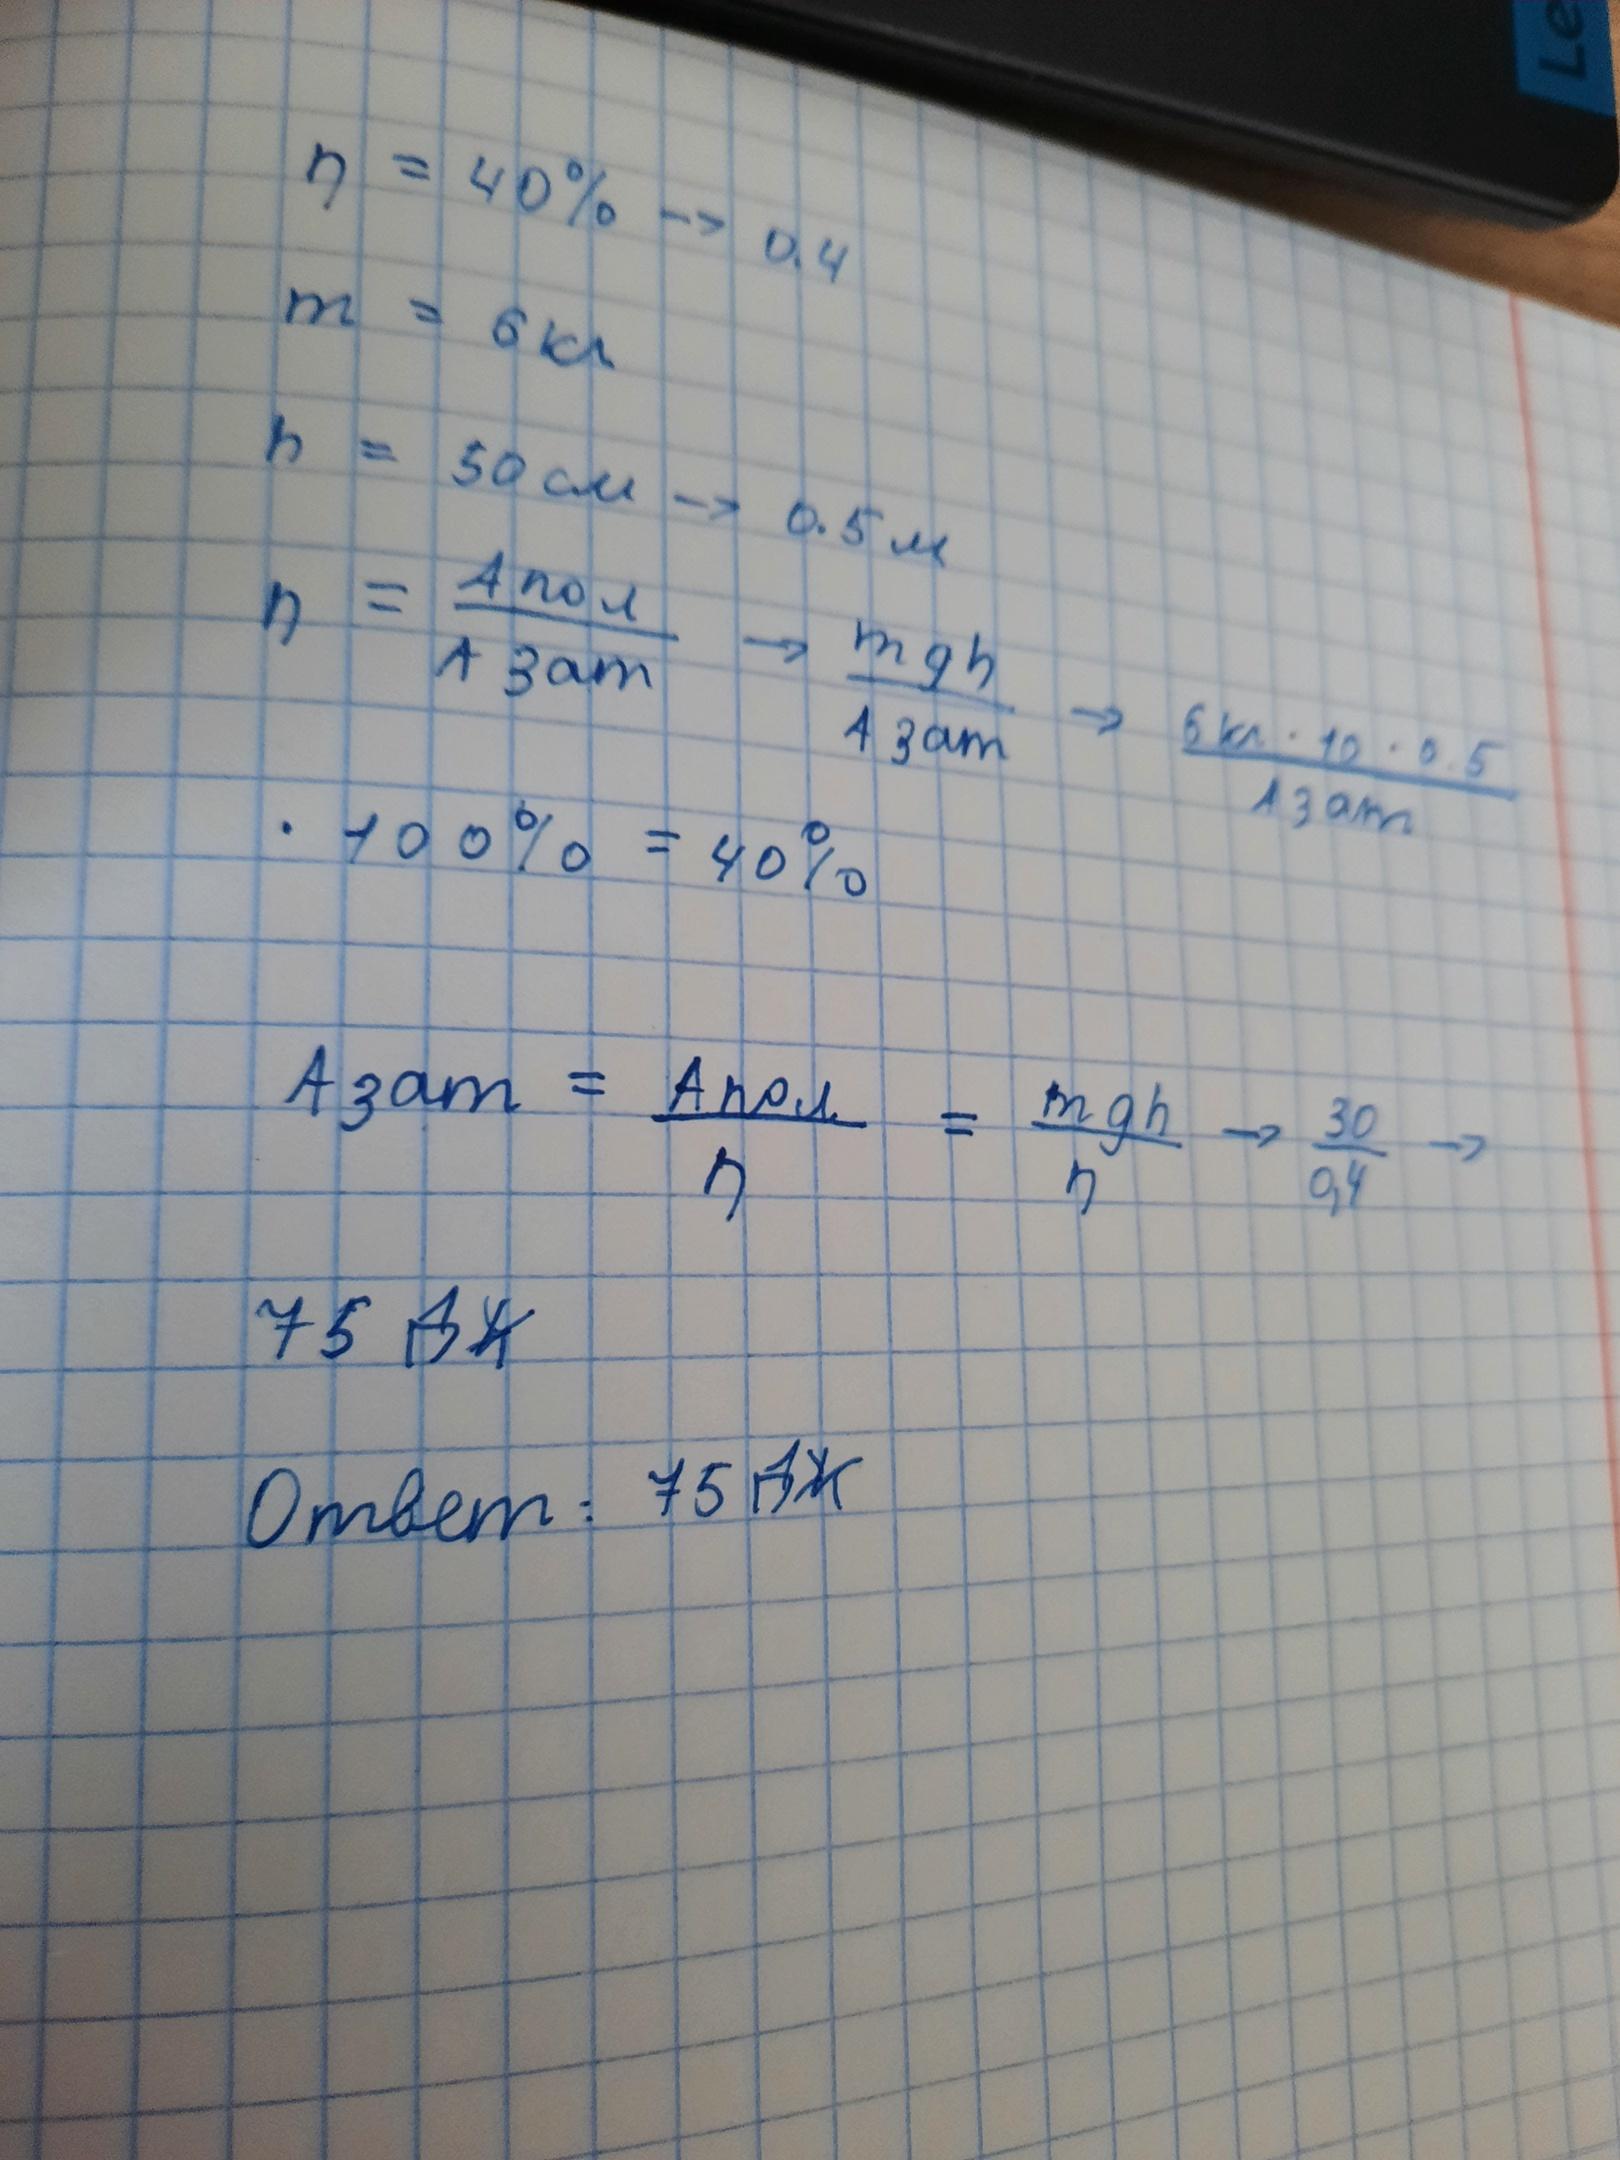 η = 40% -> 0.4
m = 6 кг
h = 50 см -> 0.5 м
η = Апол/Азат -> mgh/Азат -> 6 кг · 10 · 0.5/Азат
· 100% = 40%
Азат = Апол/η = mgh/η -> 30/0,4 ->
75 Дж
Ответ: 75 Дж
Le